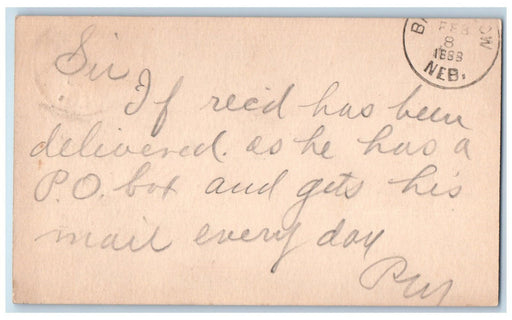 FEB
8
1899
NEB.
Sir
If rec'd has been
delivered. as he has a
P.O. box and gets his
mail every day
PM